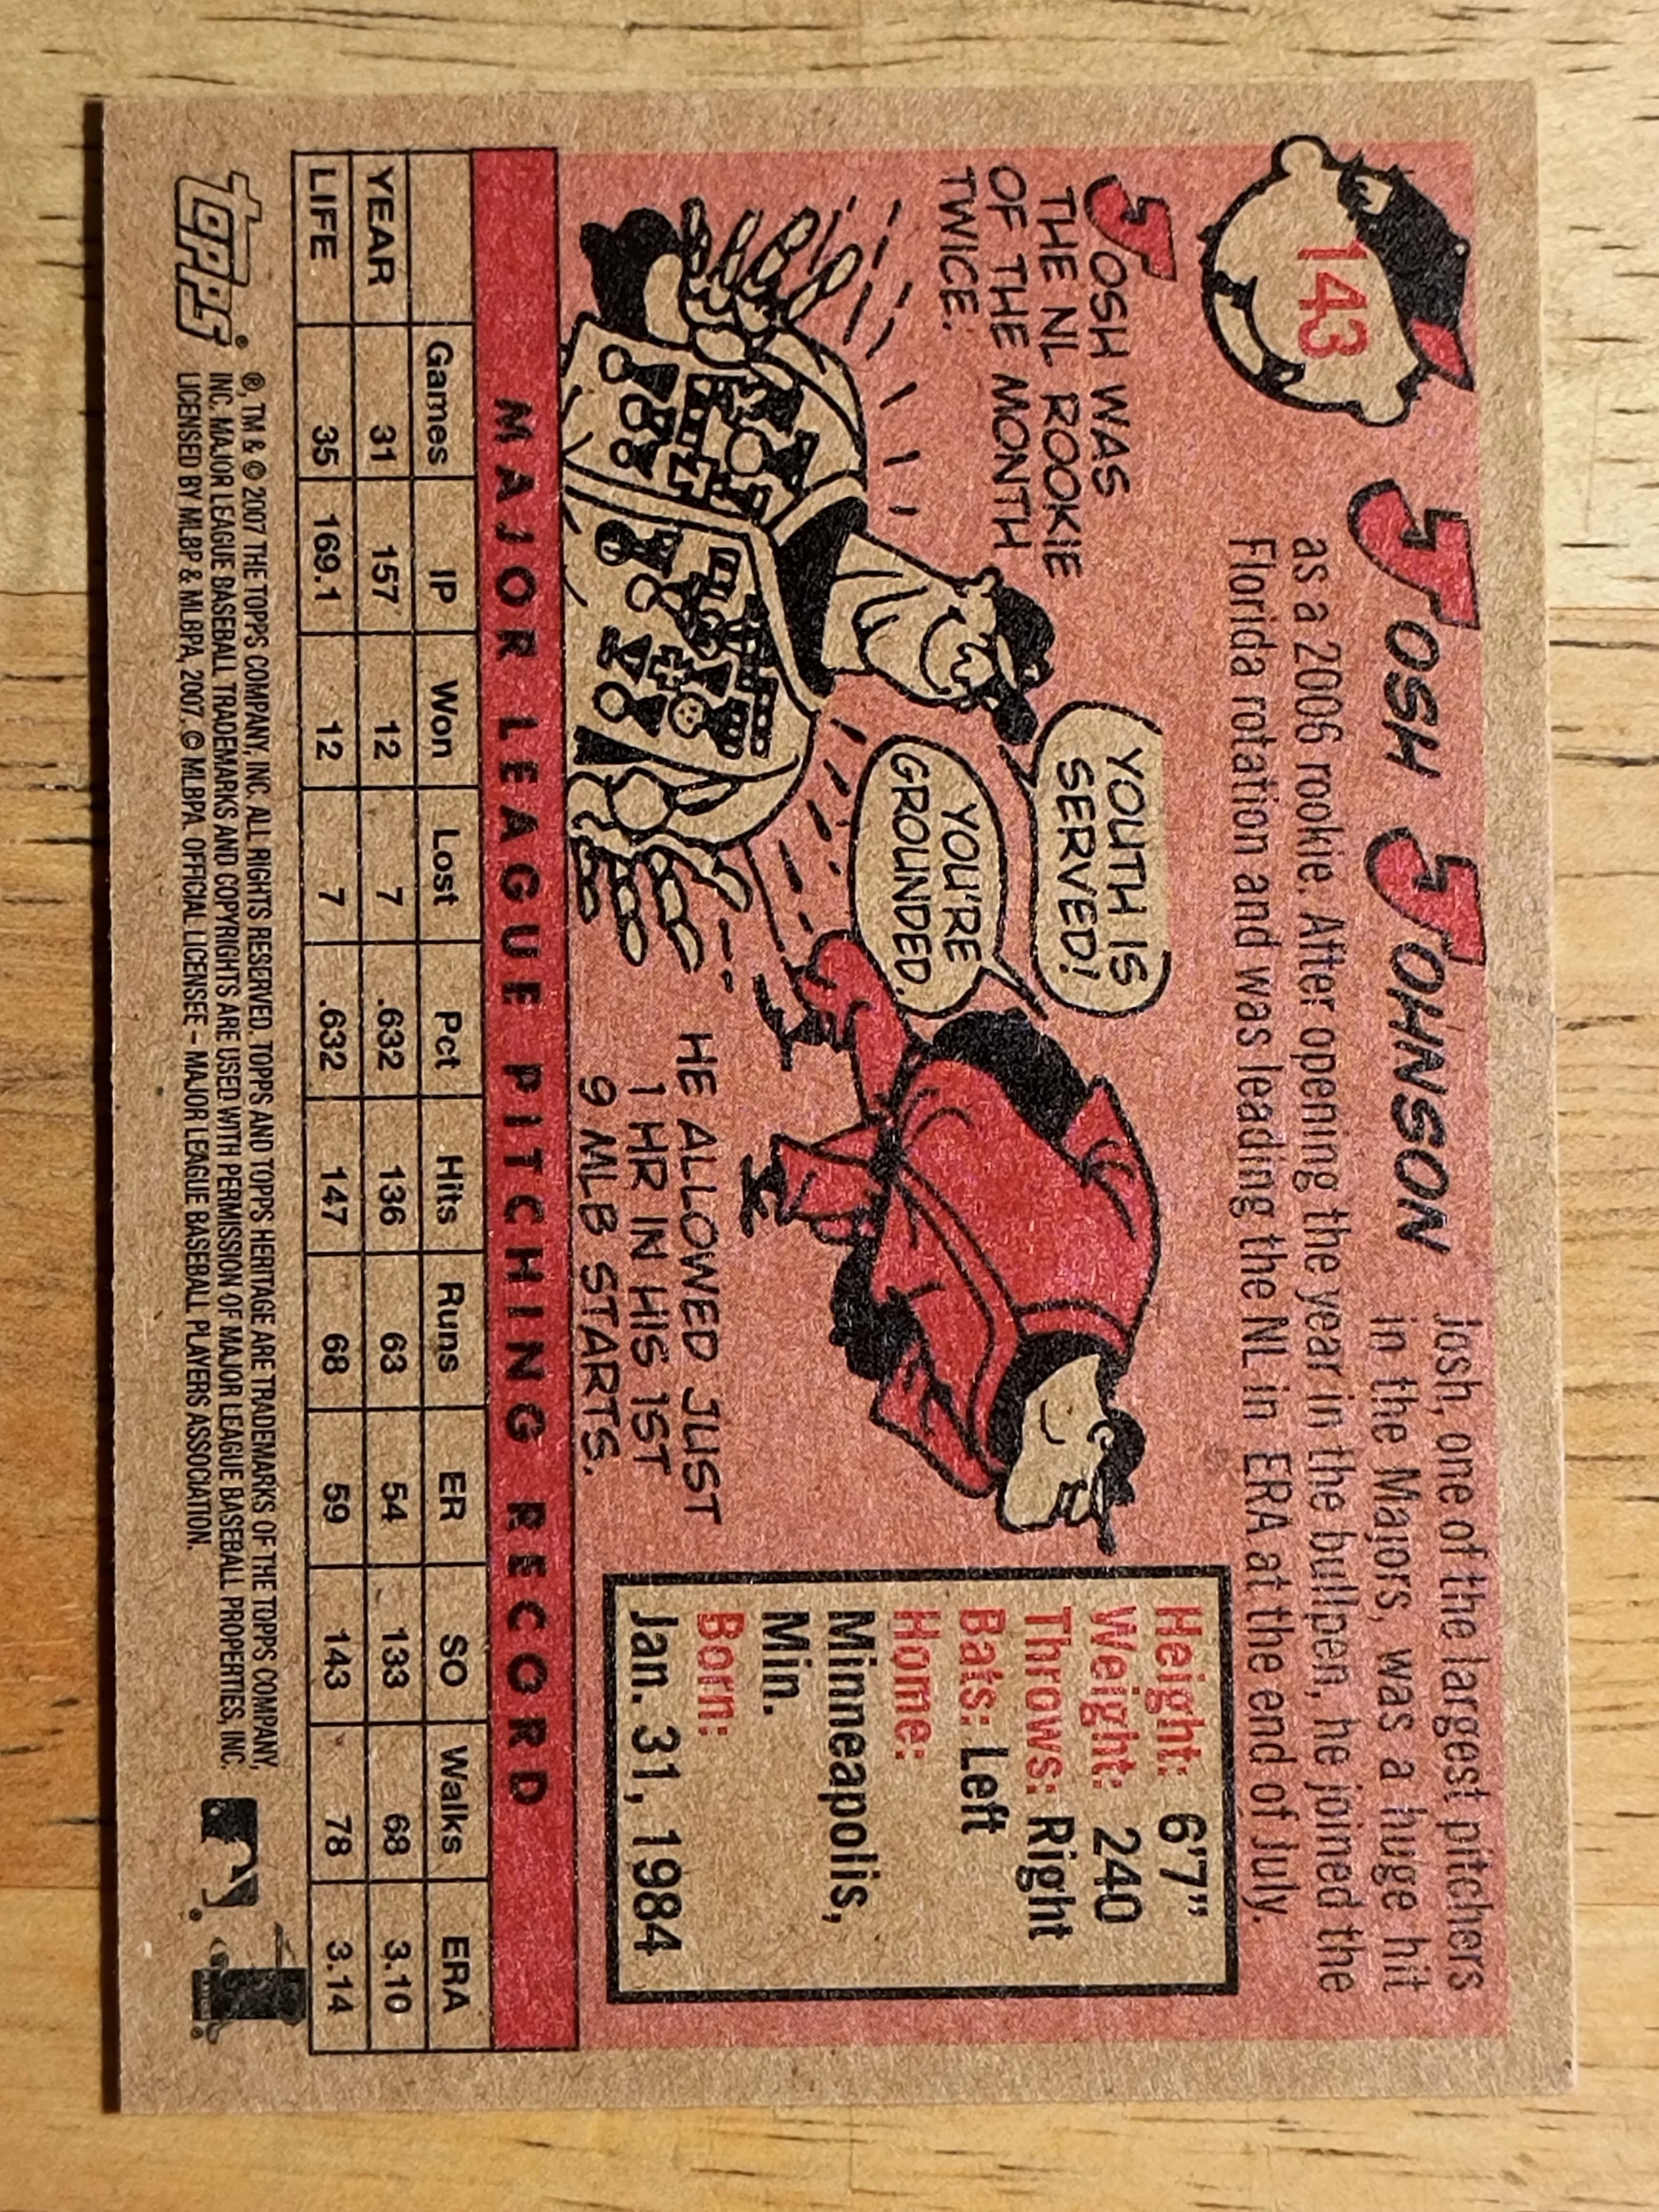 143
JOSH JOHNSON
Josh, one of the largest pitchers
in the Majors, was a huge hit
as a 2006 rookie. After opening the year in the bullpen, he joined the
Florida rotation and was leading the NL in ERA at the end of July.
JOSH WAS
THE NL ROOKIE
OF THE MONTH
TWICE.
YOUTH IS
SERVED!
YOU'RE
GROUNDED.
HE ALLOWED JUST
1 HR IN HIS 1ST
9 MLB STARTS.
Height: 6'7"
Weight: 240
Throws: Right
Bats: Left
Home:
Minneapolis,
Min.
Born:
Jan. 31, 1984
MAJOR LEAGUE PITCHING RECORD
Games IP Won Lost Pct Hits Runs ER SO Walks ERA
YEAR 31 157 12 7 .632 136 63 54 133 68 3.10
LIFE 35 169.1 12 7 .632 147 68 59 143 78 3.14
topps®
®, TM & © 2007 THE TOPPS COMPANY, INC. ALL RIGHTS RESERVED. TOPPS AND TOPPS HERITAGE ARE TRADEMARKS OF THE TOPPS COMPANY,
INC. MAJOR LEAGUE BASEBALL TRADEMARKS AND COPYRIGHTS ARE USED WITH PERMISSION OF MAJOR LEAGUE BASEBALL PROPERTIES, INC.
LICENSED BY MLBP & MLBPA, 2007, © MLBPA. OFFICIAL LICENSEE – MAJOR LEAGUE BASEBALL PLAYERS ASSOCIATION.